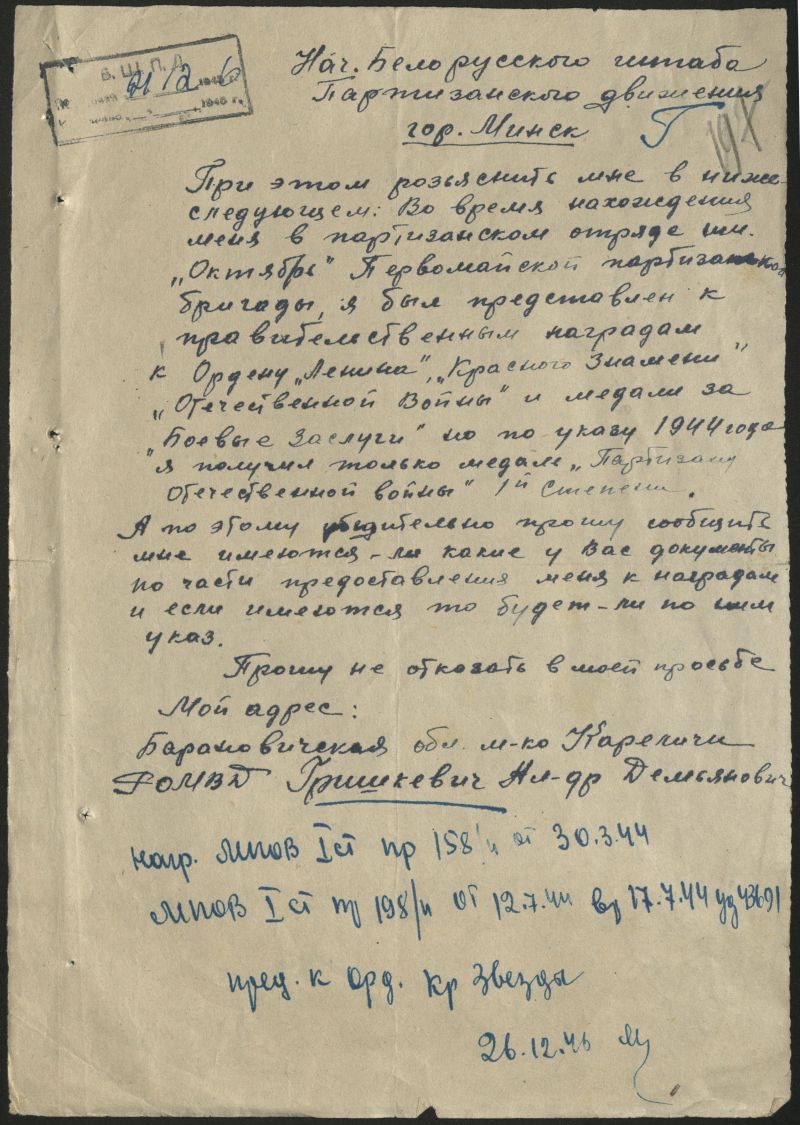 Б. Ш. П. Д.
21 12 6
194 г.
Нач. Белорусского штаба
Партизанского движения
гор. Минск
Г
При этом розьяснить мне в ниже-
следующем: Во время нахождения
меня в партизанском отряде им.
„Октябрь" Первомайской партизанской
бригады, я был представлен к
правительственным наградам
к Ордену „Ленина", „Красного Знамени"
„Отечественной Войны" и медали за
„Боевые Заслуги" но по указу 1944 года
я получил только медаль „Партизану
Отечественной войны" 1й степени.
А по этому убидительно прошу сообщить
мне имеются-ли какие у Вас документы
по части предоставления меня к наградам
и если имеются то будет-ли по ним
указ.
Прошу не отказать в моей просьбе
Мой адрес:
Барановичская обл. м-ко Кареличи
РОМВД Гришкевич Ал-др Демьянович
нагр. МПОВ I ст пр 158/н от 30.3.44
МПОВ I ст пр 198/н от 12.7.44 вр 17.7.44 уд 43691
пред. к орд. Кр Звезды
26.12.46